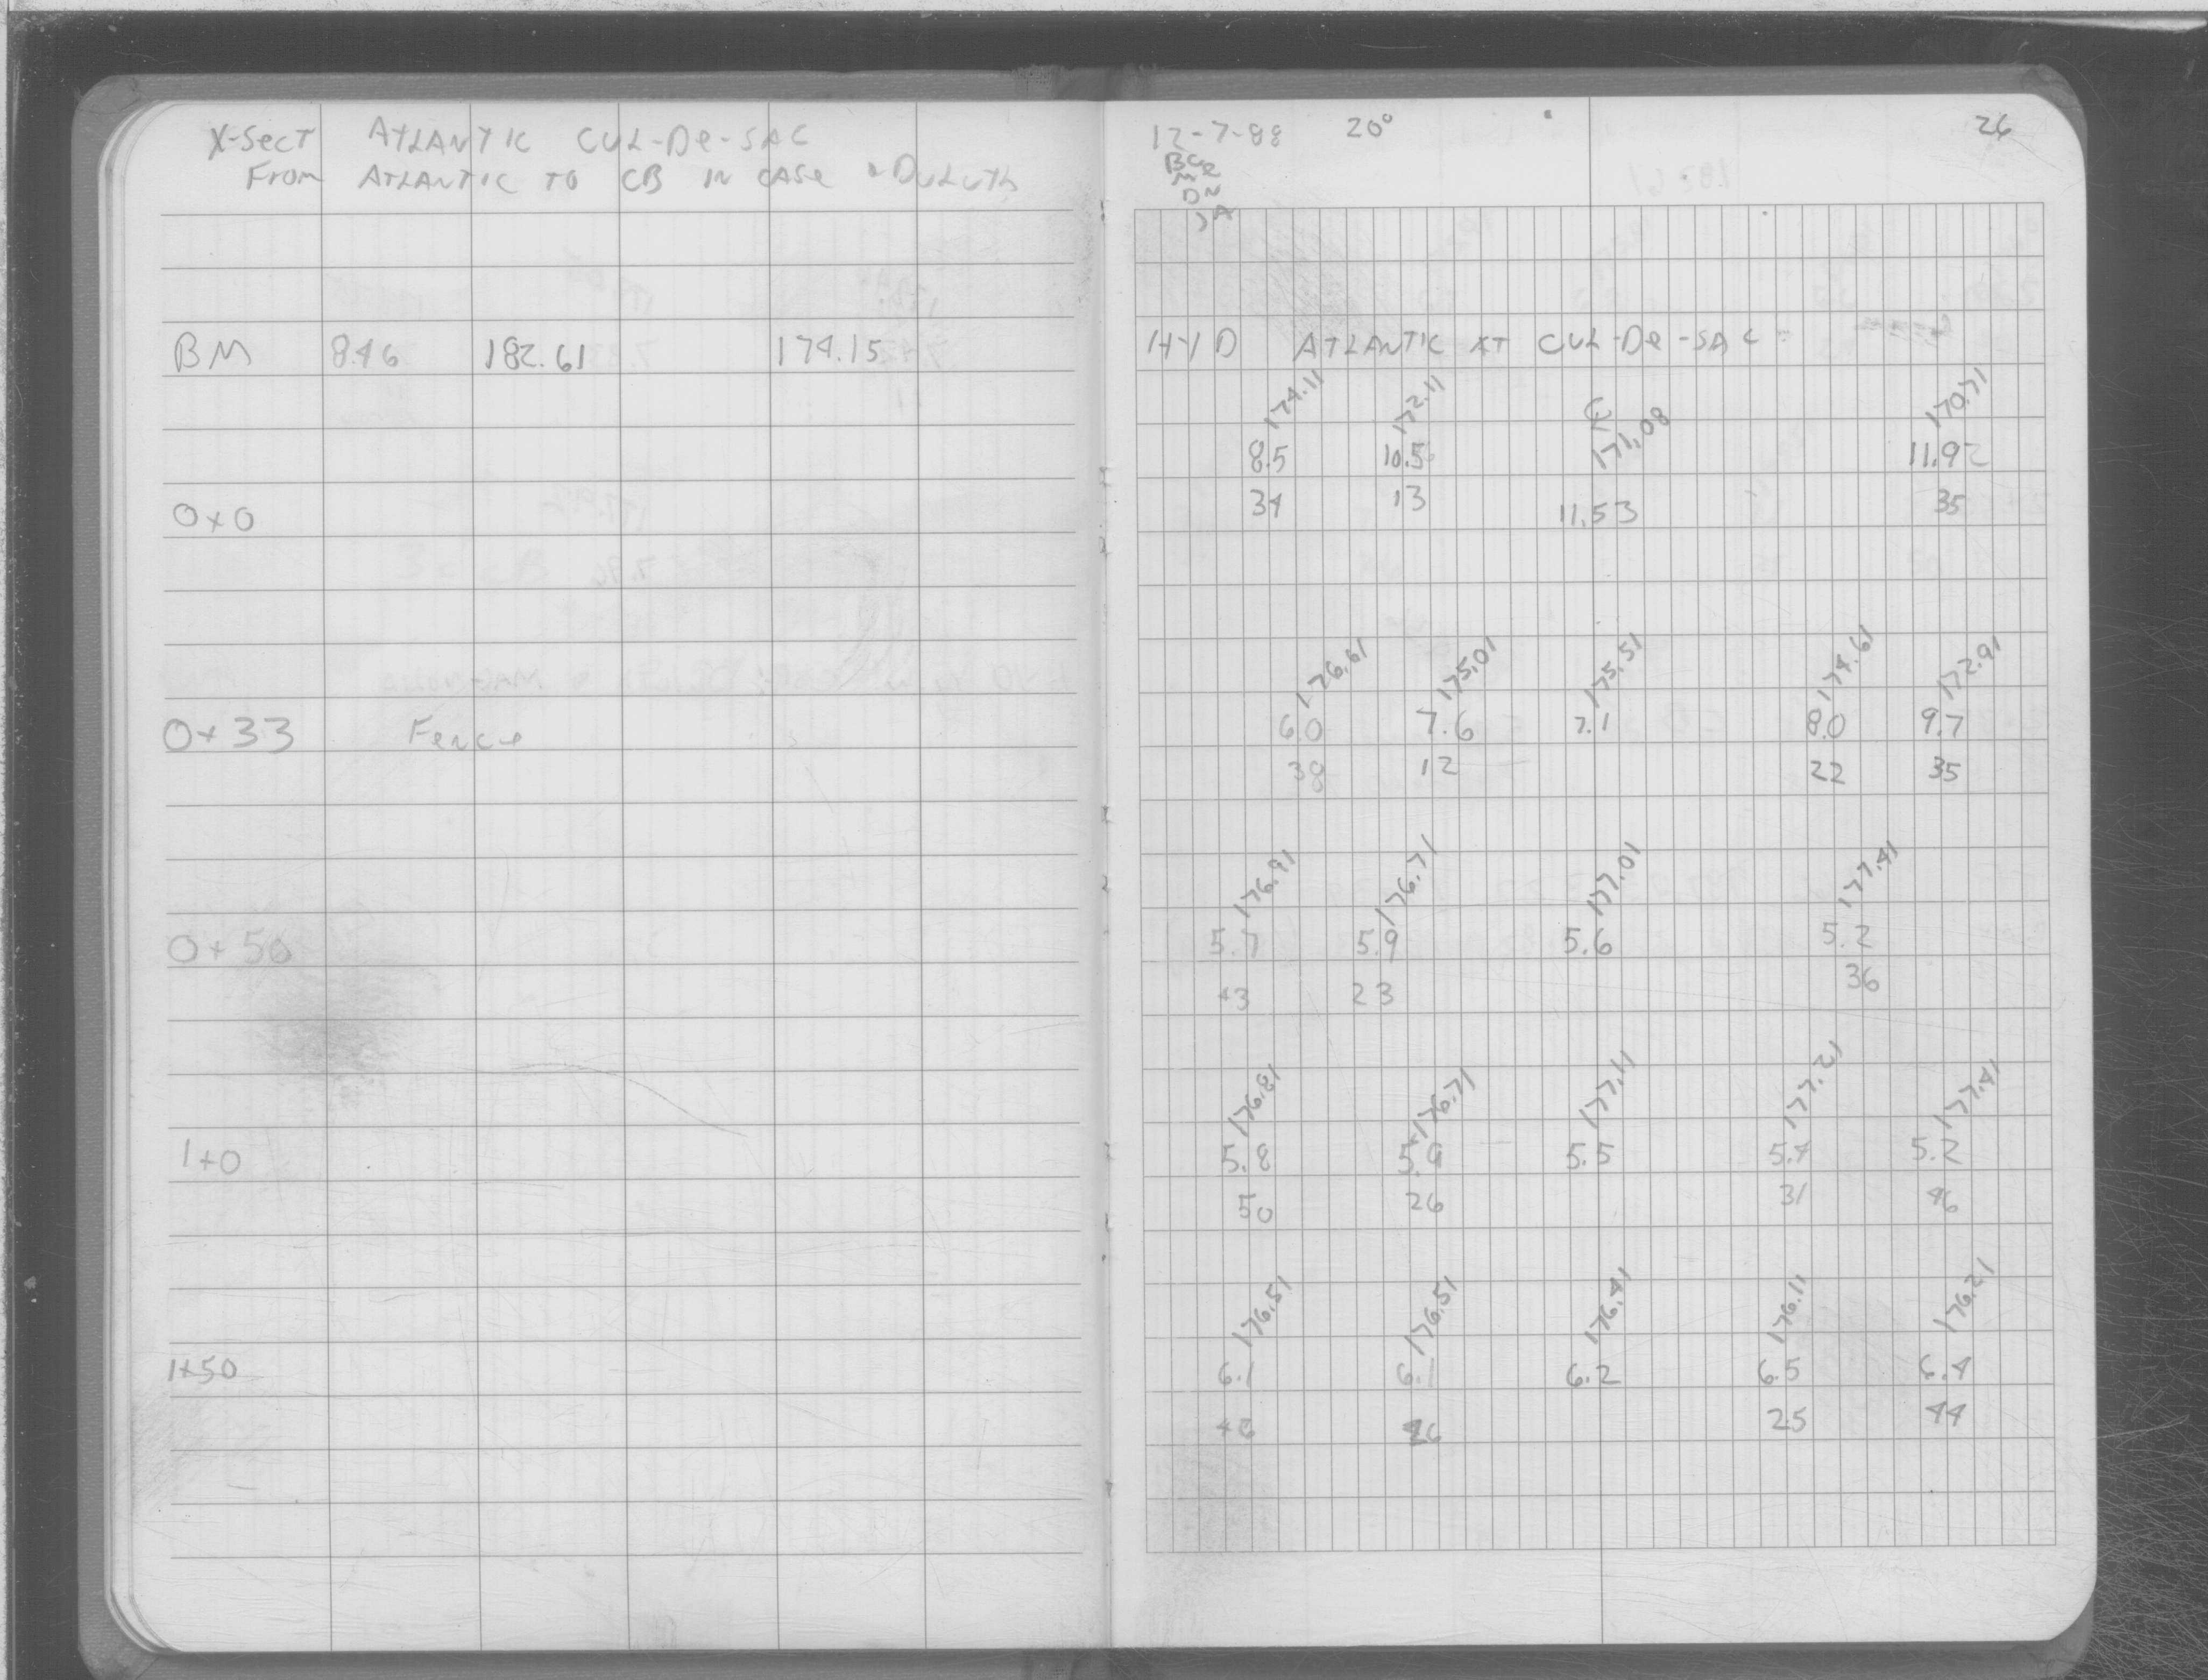 X-Sect ATLANTIC CUL-De-SAC
From ATLANTIC TO CB IN CASE & DULUTH
12-7-88 20° 26
BG
MR
DN
JA
BM 8.46 182.61 174.15 HYD ATLANTIC AT CUL-De-SAC
174.11 172.11 ℄ 171.08 170.71
8.5 10.5 11.92
0+0 34 13 11.53 35
176.61 175.01 175.51 174.61 172.91
0+33 Fence 6.0 7.6 7.1 8.0 9.7
38 12 22 35
176.91 176.71 177.01 177.41
0+50 5.7 5.9 5.6 5.2
43 23 36
176.81 176.71 177.11 177.21 177.41
1+0 5.8 5.9 5.5 5.4 5.2
50 26 31 46
176.51 176.51 176.41 176.11 176.21
1+50 6.1 6.1 6.2 6.5 6.4
26 25 44